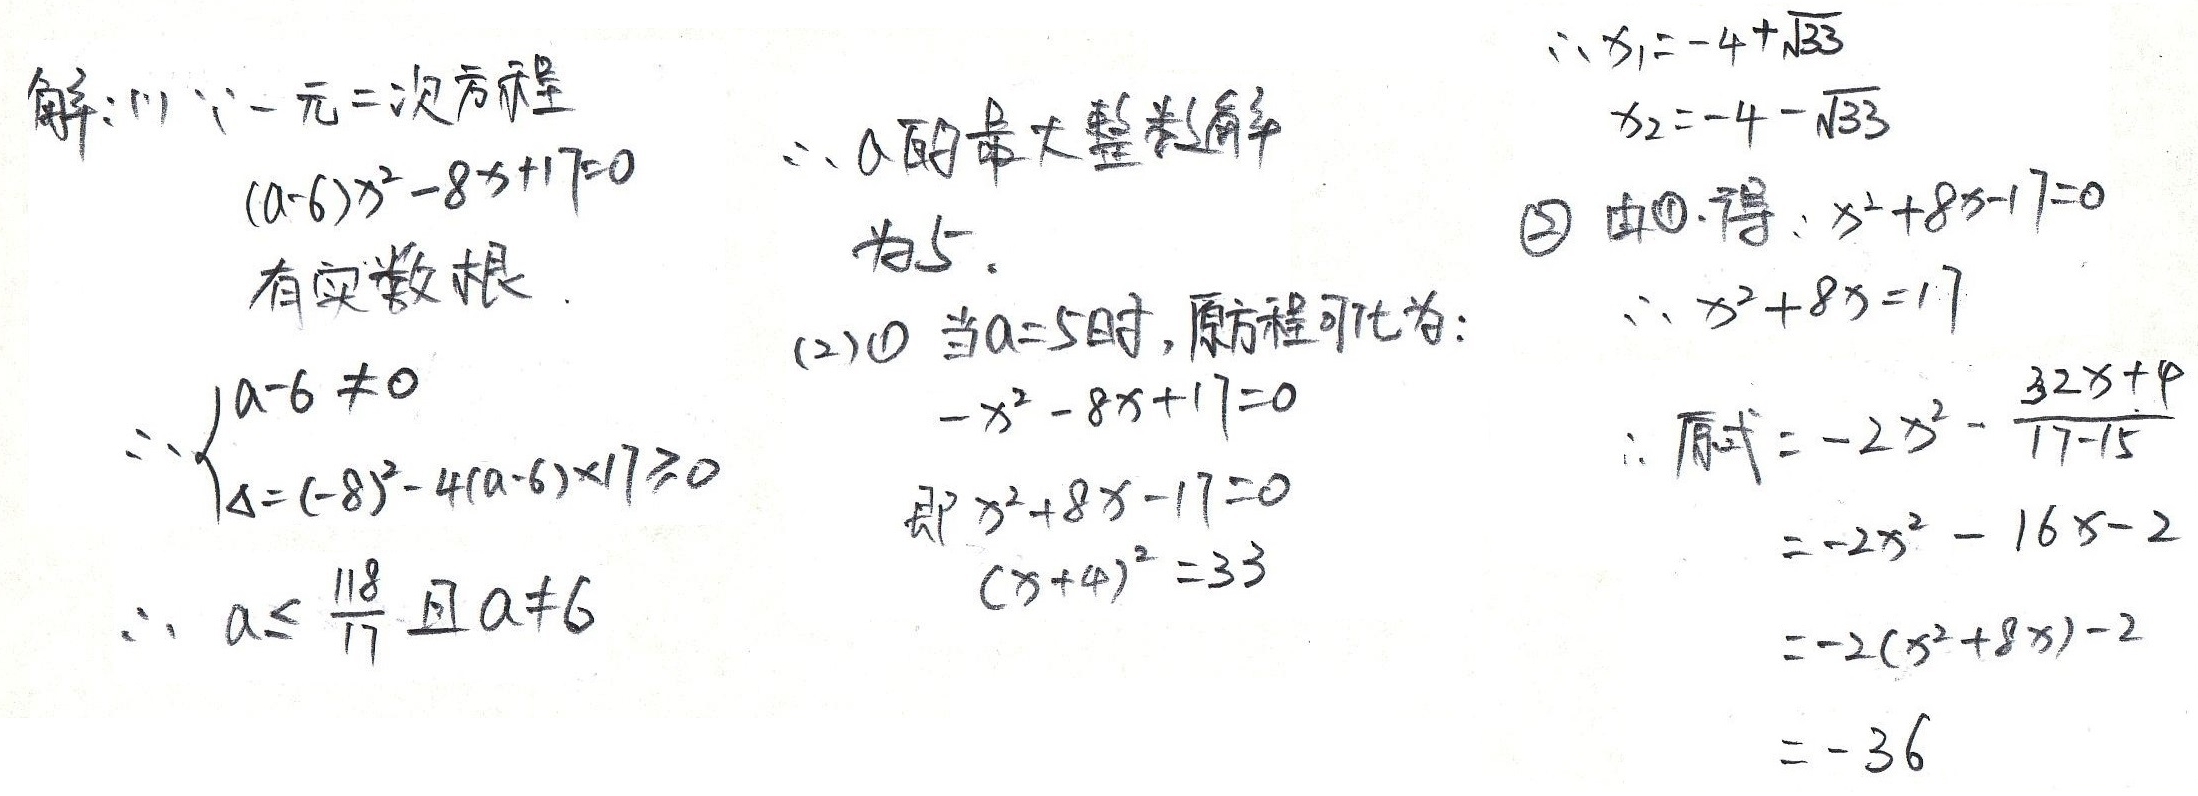 解:(1) ∵一元二次方程
(a-6)x²-8x+17=0
有实数根.
∴{a-6≠0
Δ=(-8)²-4(a-6)×17≥0
∴ a≤118/17 且 a≠6
∴ a的最大整数解
为5.
(2)① 当a=5时,原方程可化为:
-x²-8x+17=0
即 x²+8x-17=0
(x+4)²=33
∴ x₁=-4+√33
x₂=-4-√33
② 由①.得: x²+8x-17=0
∴ x²+8x=17
∴ 原式=-2x²-(32x+4)/(17-15)
=-2x²-16x-2
=-2(x²+8x)-2
=-36